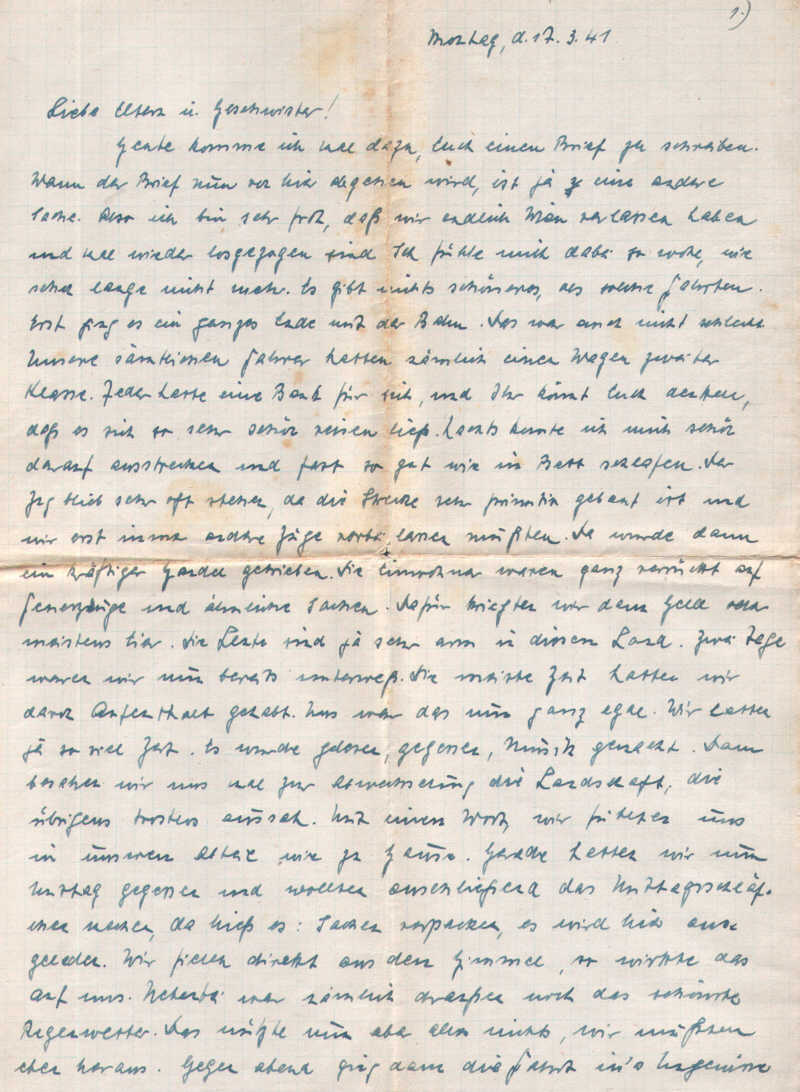 1.)
Montag, d. 17. 3. 41
Liebe Eltern u. Geschwister!
Heute komme ich mal dazu, Euch einen Brief zu schreiben.
Wann der Brief nun von hier abgehen wird, ist ja eine andere
Sache. Also ich bin sehr froh, daß wir endlich Wien verlassen haben
und mal wieder losgezogen sind. Ich fühle mich dabei so wohl, wie
schon lange nicht mehr. Es gibt nichts schöneres, als solche Fahrten.
Erst ging es ein ganzes Ende mit der Bahn. Das war auch nicht schlecht.
Unsere sämtlichen Fahrer hatten nämlich einen Wagen zweiter
Klasse. Jeder hatte eine Bank für sich, und Ihr könnt Euch denken,
daß es sich so sehr schön reisen ließ. Nachts konnte ich mich schön
darauf ausstrecken und fast so gut wie im Bett schlafen. Der
Zug blieb sehr oft stehen, da die Strecke sehr primitiv gebaut ist und
wir erst immer andere Züge vorbei lassen mußten. Da wurde dann
ein kräftiger Handel getrieben. Die Einwohner waren ganz verrückt auf
Feuerzeuge und ähnliche Sachen. Dafür kriegten wir dann Geld oder
meistens Eier. Die Leute sind ja sehr arm in diesem Land. Zwei Tage
waren wir nun bereits unterwegs. Die meiste Zeit hatten wir
davon Aufenthalt gehabt. Uns war das nun ganz egal. Wir hatten
ja so viel Zeit. Es wurde gelesen, gegessen, Musik gemacht. Dann
besahen wir uns mal zur Abwechselung die Landschaft, die
übrigens trostlos aussah. Mit einem Wort, wir fühlten uns
in unserem Abteil wie zu Hause. Gerade hatten wir nun
Mittag gegessen und wollten anschließend das Mittagsschläf-
chen machen, da hieß es: Sachen verpacken, es wird hier aus-
geladen. Wir fielen direkt aus dem Himmel, so wirkte das
auf uns. Nebenbei war nämlich draußen noch das schönste
Regenwetter. Das nützte nun aber alles nichts, wir mußten
eben heraus. Gegen abend ging dann die Fahrt in's Ungewisse